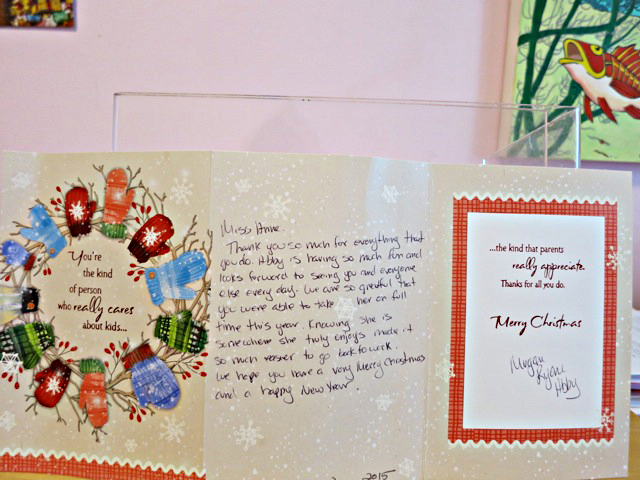 You're
the kind
of person
who really cares
about kids...
Miss Anne.
Thank you so much for everything that
you do. Abby is having so much fun and
looks forward to seeing you and everyone
else every day. We are so greatful that
you were able to take her on full
time this year. Knowing she is
somewhere she truly enjoys made it
so much easier to go back to work.
We hope you have a very Merry Christmas
and a happy New Year
2015
...the kind that parents
really appreciate.
Thanks for all you do.
Merry Christmas
Abby